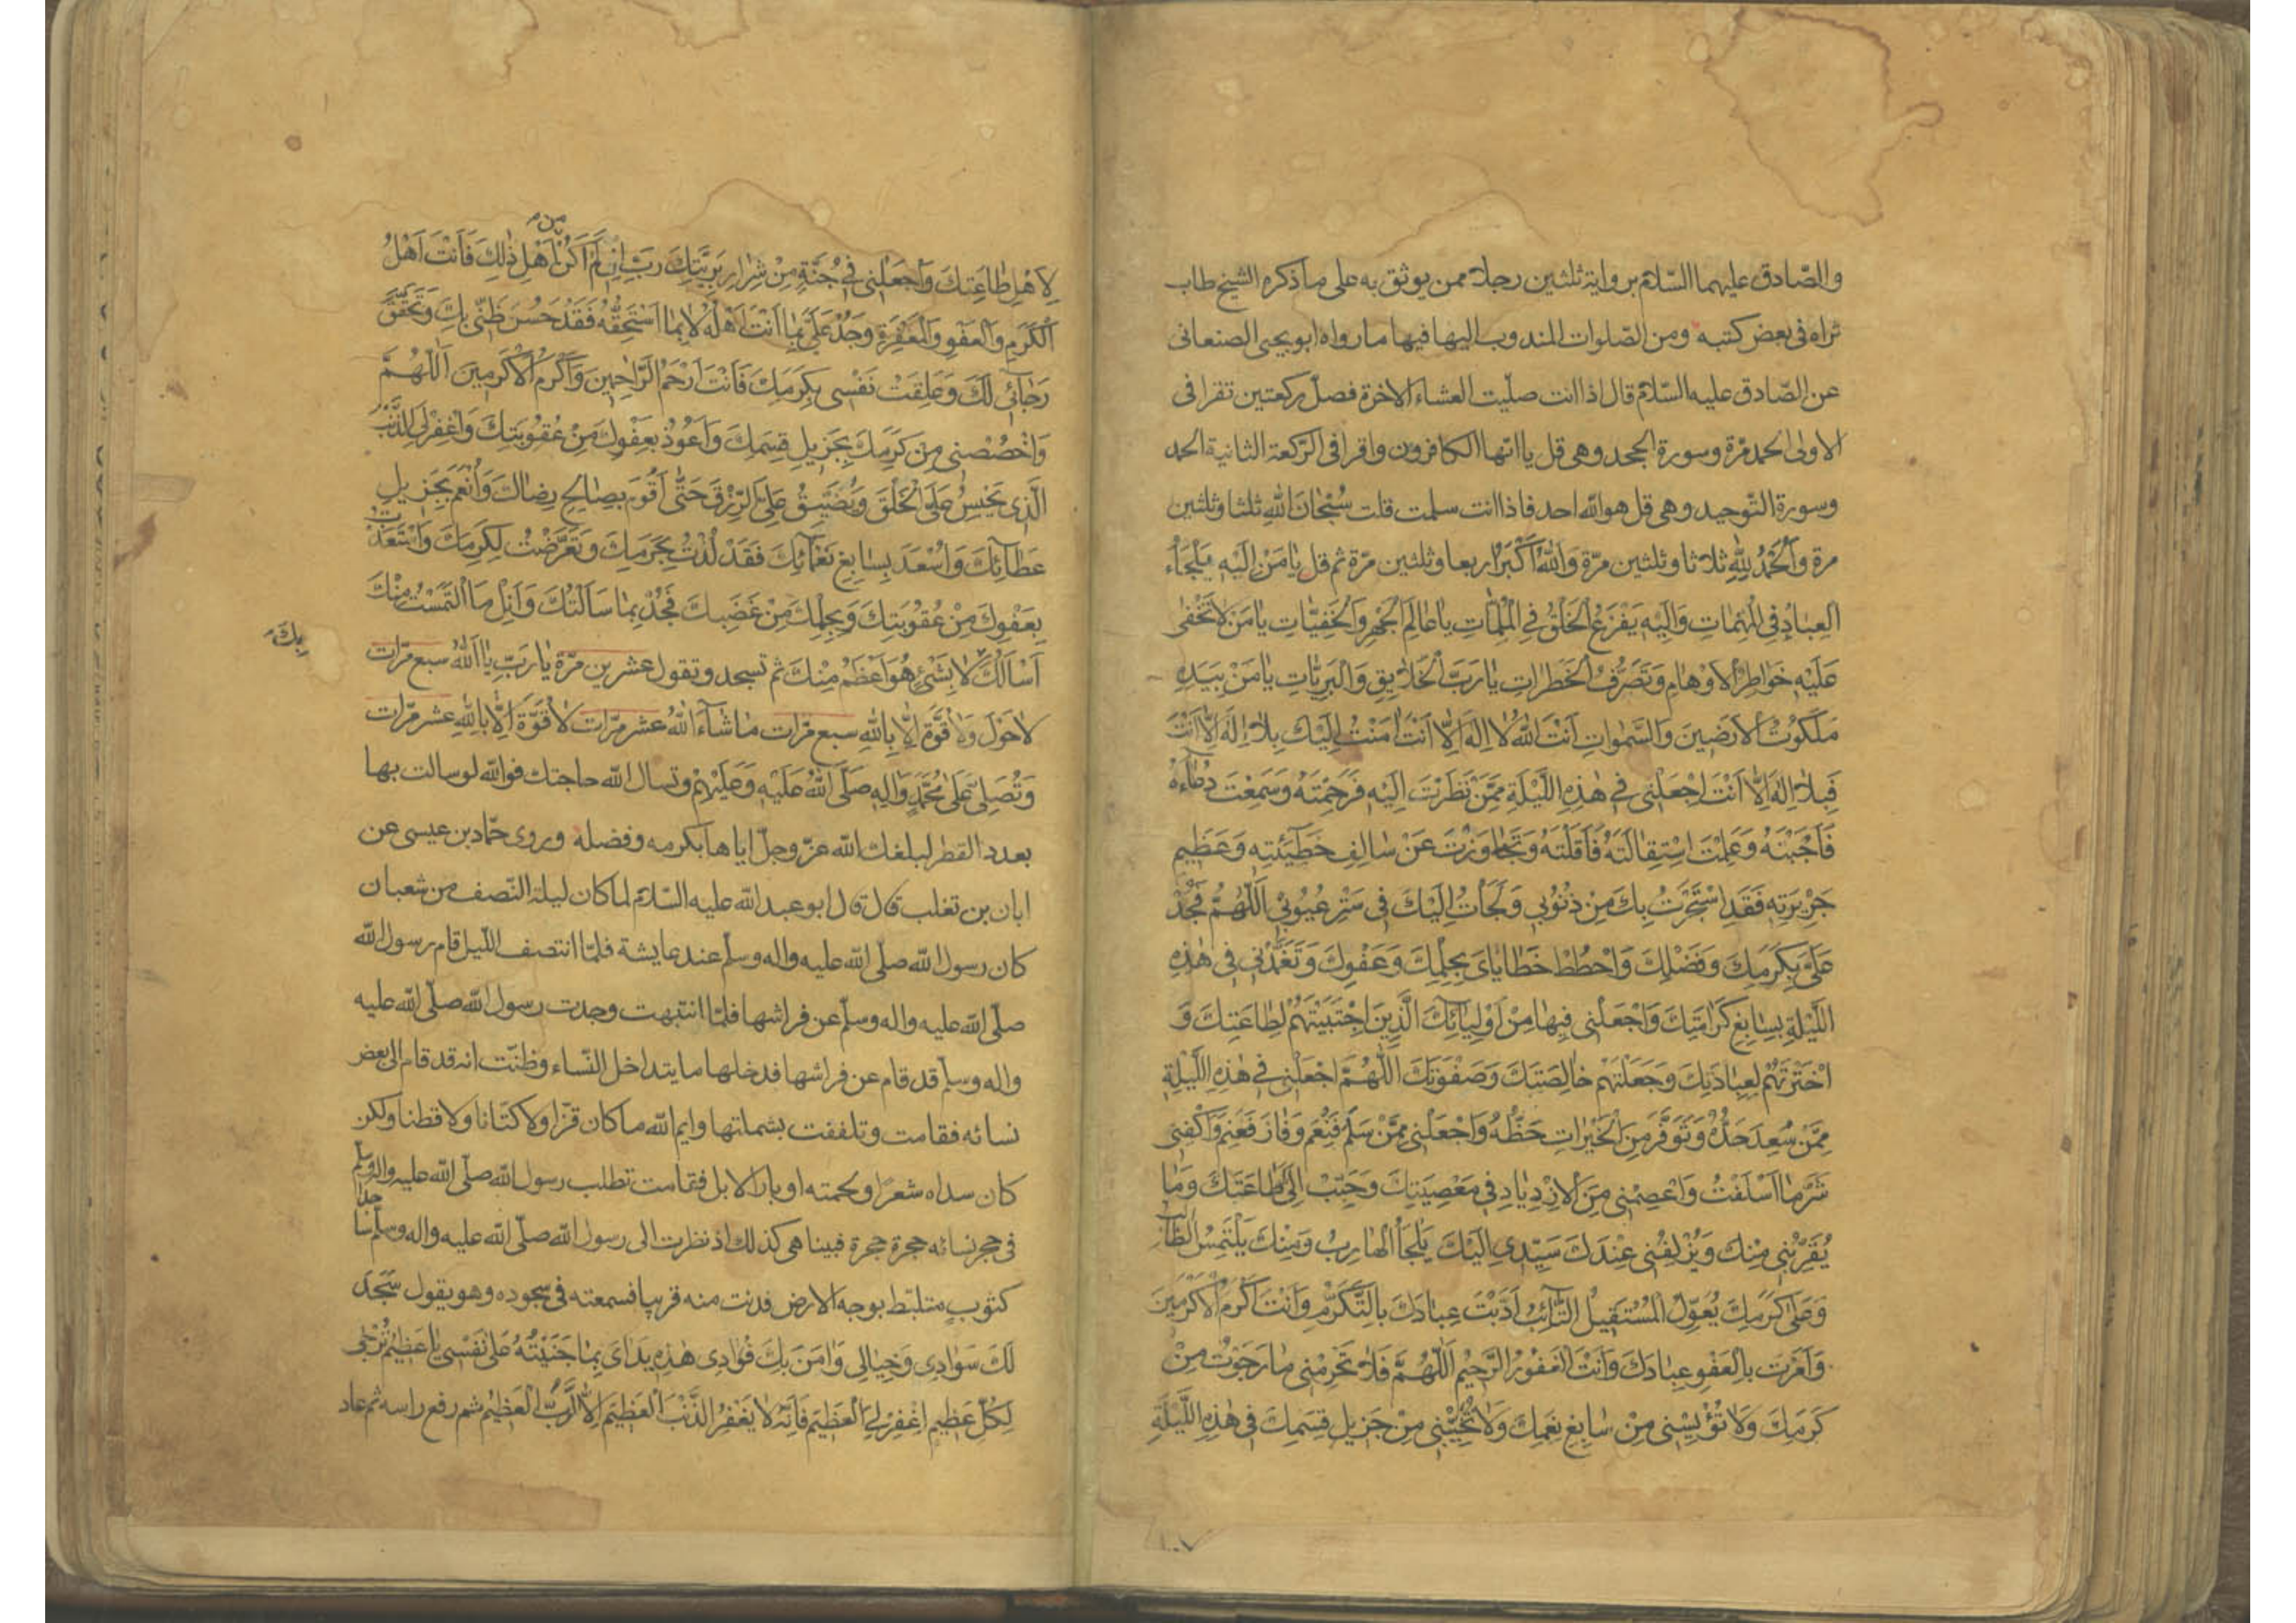 والصّادق عليهما السّلام برواية ثلثين رجلا ممن يوثق به على ما ذكره الشيخ طاب
ثراه فى بعض كتبه ومن الصّلوات المندوب اليها فيها ما رواه ابو يحيى الصنعانى
عن الصّادق عليه السّلام قال اذا انت صلّيت العشاء الاخرة فصلّ ركعتين تقرا فى
الاولى الحمد مرّة وسورة الجحد وهى قل يا ايّها الكافرون واقرا فى الرّكعة الثانية الحمد
وسورة التّوحيد وهى قل هو الله احد فاذا انت سلمت قلت سُبْحَانَ اللهِ ثلثا وثلثين
مرة وَالْحَمْدُ لِلّٰهِ ثلاثا وثلثين مرّة وَاللهُ اَكْبَرُ اربعا وثلثين مرّة ثم قل يَا مَنْ اِلَيْهِ يَلْجَاُ
الْعِبَادُ فِى الْمُهِمَّاتِ وَاِلَيْهِ يَفْزَعُ الْخَلْقُ فِى الْمُلِمَّاتِ يَا عَالِمَ الْجَهْرِ وَالْخَفِيَّاتِ يَا مَنْ لَا تَخْفٰى
عَلَيْهِ خَوَاطِرُ الْاَوْهَامِ وَتَصَرُّفُ الْخَطَرَاتِ يَا رَبَّ الْخَلَايِقِ وَالْبَرِيَّاتِ يَا مَنْ بِيَدِهِ
مَلَكُوتُ الْاَرَضِينَ وَالسَّمٰوَاتِ اَنْتَ اللهُ لَا اِلٰهَ اِلَّا اَنْتَ اَمُتُّ اِلَيْكَ بِلَا اِلٰهَ اِلَّا اَنْتَ
فَبِلَا اِلٰهَ اِلَّا اَنْتَ اجْعَلْنِى فِى هٰذِهِ اللَّيْلَةِ مِمَّنْ نَظَرْتَ اِلَيْهِ فَرَحِمْتَهُ وَسَمِعْتَ دُعَاءَهُ
فَاَجَبْتَهُ وَعَلِمْتَ اسْتِقَالَتَهُ فَاَقَلْتَهُ وَتَجَاوَزْتَ عَنْ سَالِفِ خَطِيئَتِهِ وَعَظِيمِ
جَرِيرَتِهِ فَقَدِ اسْتَجَرْتُ بِكَ مِنْ ذُنُوبِى وَلَجَاْتُ اِلَيْكَ فِى سَتْرِ عُيُوبِى اَللّٰهُمَّ فَجُدْ
عَلَىَّ بِكَرَمِكَ وَفَضْلِكَ وَاحْطُطْ خَطَايَاىَ بِحِلْمِكَ وَعَفْوِكَ وَتَغَمَّدْنِى فِى هٰذِهِ
اللَّيْلَةِ بِسَابِغِ كَرَامَتِكَ وَاجْعَلْنِى فِيهَا مِنْ اَوْلِيَائِكَ الَّذِينَ اجْتَبَيْتَهُمْ لِطَاعَتِكَ وَ
اخْتَرْتَهُمْ لِعِبَادَتِكَ وَجَعَلْتَهُمْ خَالِصَتَكَ وَصَفْوَتَكَ اَللّٰهُمَّ اجْعَلْنِى فِى هٰذِهِ اللَّيْلَةِ
مِمَّنْ سَعِدَ جَدُّهُ وَتَوَفَّرَ مِنَ الْخَيْرَاتِ حَظُّهُ وَاجْعَلْنِى مِمَّنْ سَلِمَ فَنَعِمَ وَفَازَ فَغَنِمَ وَاكْفِنِى
شَرَّ مَا اَسْلَفْتُ وَاعْصِمْنِى مِنَ الْاِزْدِيَادِ فِى مَعْصِيَتِكَ وَحَبِّبْ اِلَىَّ طَاعَتَكَ وَمَا
يُقَرِّبُنِى مِنْكَ وَيُزْلِفُنِى عِنْدَكَ سَيِّدِى اِلَيْكَ يَلْجَاُ الْهَارِبُ وَمِنْكَ يَلْتَمِسُ الطَّالِبُ
وَعَلٰى كَرَمِكَ يُعَوِّلُ الْمُسْتَقِيلُ التَّائِبُ اَدَّبْتَ عِبَادَكَ بِالتَّكَرُّمِ وَاَنْتَ اَكْرَمُ الْاَكْرَمِينَ
وَاَمَرْتَ بِالْعَفْوِ عِبَادَكَ وَاَنْتَ الْغَفُورُ الرَّحِيمُ اَللّٰهُمَّ فَلَا تَحْرِمْنِى مَا رَجَوْتُ مِنْ
كَرَمِكَ وَلَا تُؤْيِسْنِى مِنْ سَابِغِ نِعَمِكَ وَلَا تُخَيِّبْنِى مِنْ جَزِيلِ قِسَمِكَ فِى هٰذِهِ اللَّيْلَةِ
لِاَهْلِ طَاعَتِكَ وَاجْعَلْنِى فِى جُنَّةٍ مِنْ شِرَارِ بَرِيَّتِكَ رَبِّ اِنْ لَمْ اَكُنْ مِنْ اَهْلِ ذٰلِكَ فَاَنْتَ اَهْلُ
الْكَرَمِ وَالْعَفْوِ وَالْمَغْفِرَةِ وَجُدْ عَلَىَّ بِمَا اَنْتَ اَهْلُهُ لَا بِمَا اَسْتَحِقُّهُ فَقَدْ حَسُنَ ظَنِّى بِكَ وَتَحَقَّقَ
رَجَائِى لَكَ وَعَلِقَتْ نَفْسِى بِكَرَمِكَ فَاَنْتَ اَرْحَمُ الرَّاحِمِينَ وَاَكْرَمُ الْاَكْرَمِينَ اَللّٰهُمَّ
وَاخْصُصْنِى مِنْ كَرَمِكَ بِجَزِيلِ قِسَمِكَ وَاَعُوذُ بِعَفْوِكَ مِنْ عُقُوبَتِكَ وَاغْفِرْ لِىَ الذَّنْبَ
الَّذِى يَحْبِسُ عَلَىَّ الْخُلُقَ وَيُضَيِّقُ عَلَىَّ الرِّزْقَ حَتّٰى اَقُومَ بِصَالِحِ رِضَاكَ وَاَنْعَمَ بِجَزِيلِ
عَطَائِكَ وَاَسْعَدَ بِسَابِغِ نَعْمَائِكَ فَقَدْ لُذْتُ بِحَرَمِكَ وَتَعَرَّضْتُ لِكَرَمِكَ وَاسْتَعَذْتُ
بِعَفْوِكَ مِنْ عُقُوبَتِكَ وَبِحِلْمِكَ مِنْ غَضَبِكَ فَجُدْ بِمَا سَاَلْتُكَ وَاَنِلْ مَا الْتَمَسْتُ مِنْكَ
اَسْاَلُكَ بِكَ لَا بِشَىْءٍ هُوَ اَعْظَمُ مِنْكَ ثم تسجد وتقول عشرين مرّة يَا رَبِّ يَا اَللهُ سبع مرّات
لَا حَوْلَ وَلَا قُوَّةَ اِلَّا بِاللهِ سبع مرّات مَا شَاءَ اللهُ عشر مرّات لَا قُوَّةَ اِلَّا بِاللهِ عشر مرّات
وَتُصَلِّى عَلٰى مُحَمَّدٍ وَالِهِ صَلَّى اللهُ عَلَيْهِ وَعَلَيْهِمْ وتسال الله حاجتك فوالله لو سالت بها
بعدد القطر لبلغك الله عزّ وجلّ اياها بكرمه وفضله وروى حمّاد بن عيسى عن
ابان بن تغلب قال قال ابو عبد الله عليه السّلام لما كان ليلة النّصف من شعبان
كان رسول الله صلّى الله عليه واله وسلّم عند عايشة فلمّا انتصف اللّيل قام رسول الله
صلّى الله عليه واله وسلّم عن فراشها فلمّا انتبهت وجدت رسول الله صلّى الله عليه
واله وسلّم قد قام عن فراشها فدخلها ما يتداخل النّساء وظنّت انه قد قام الى بعض
نسائه فقامت وتلففت بشملتها وايم الله ما كان قزّا ولا كتّانا ولا قطنا ولكن
كان سداه شعرًا ولحمته اوبار الابل فقامت تطلب رسول الله صلّى الله عليه واله وسلّم
فى حجر نسائه حجرة حجرة فبينا هى كذلك اذ نظرت الى رسول الله صلّى الله عليه واله وسلّم ساجدا
كثوبٍ متلبّط بوجه الارض فدنت منه قريبا فسمعته فى سجوده وهو يقول سَجَدَ
لَكَ سَوَادِى وَخِيَالِى وَامَنَ بِكَ فُؤَادِى هٰذِهِ يَدَاىَ بِمَا جَنَيْتُهُ عَلٰى نَفْسِى يَا عَظِيمُ تُرْجٰى
لِكُلِّ عَظِيمٍ اغْفِرْ لِىَ الْعَظِيمَ فَاِنَّهُ لَا يَغْفِرُ الذَّنْبَ الْعَظِيمَ اِلَّا الرَّبُّ الْعَظِيمُ ثم رفع راسه ثم عاد